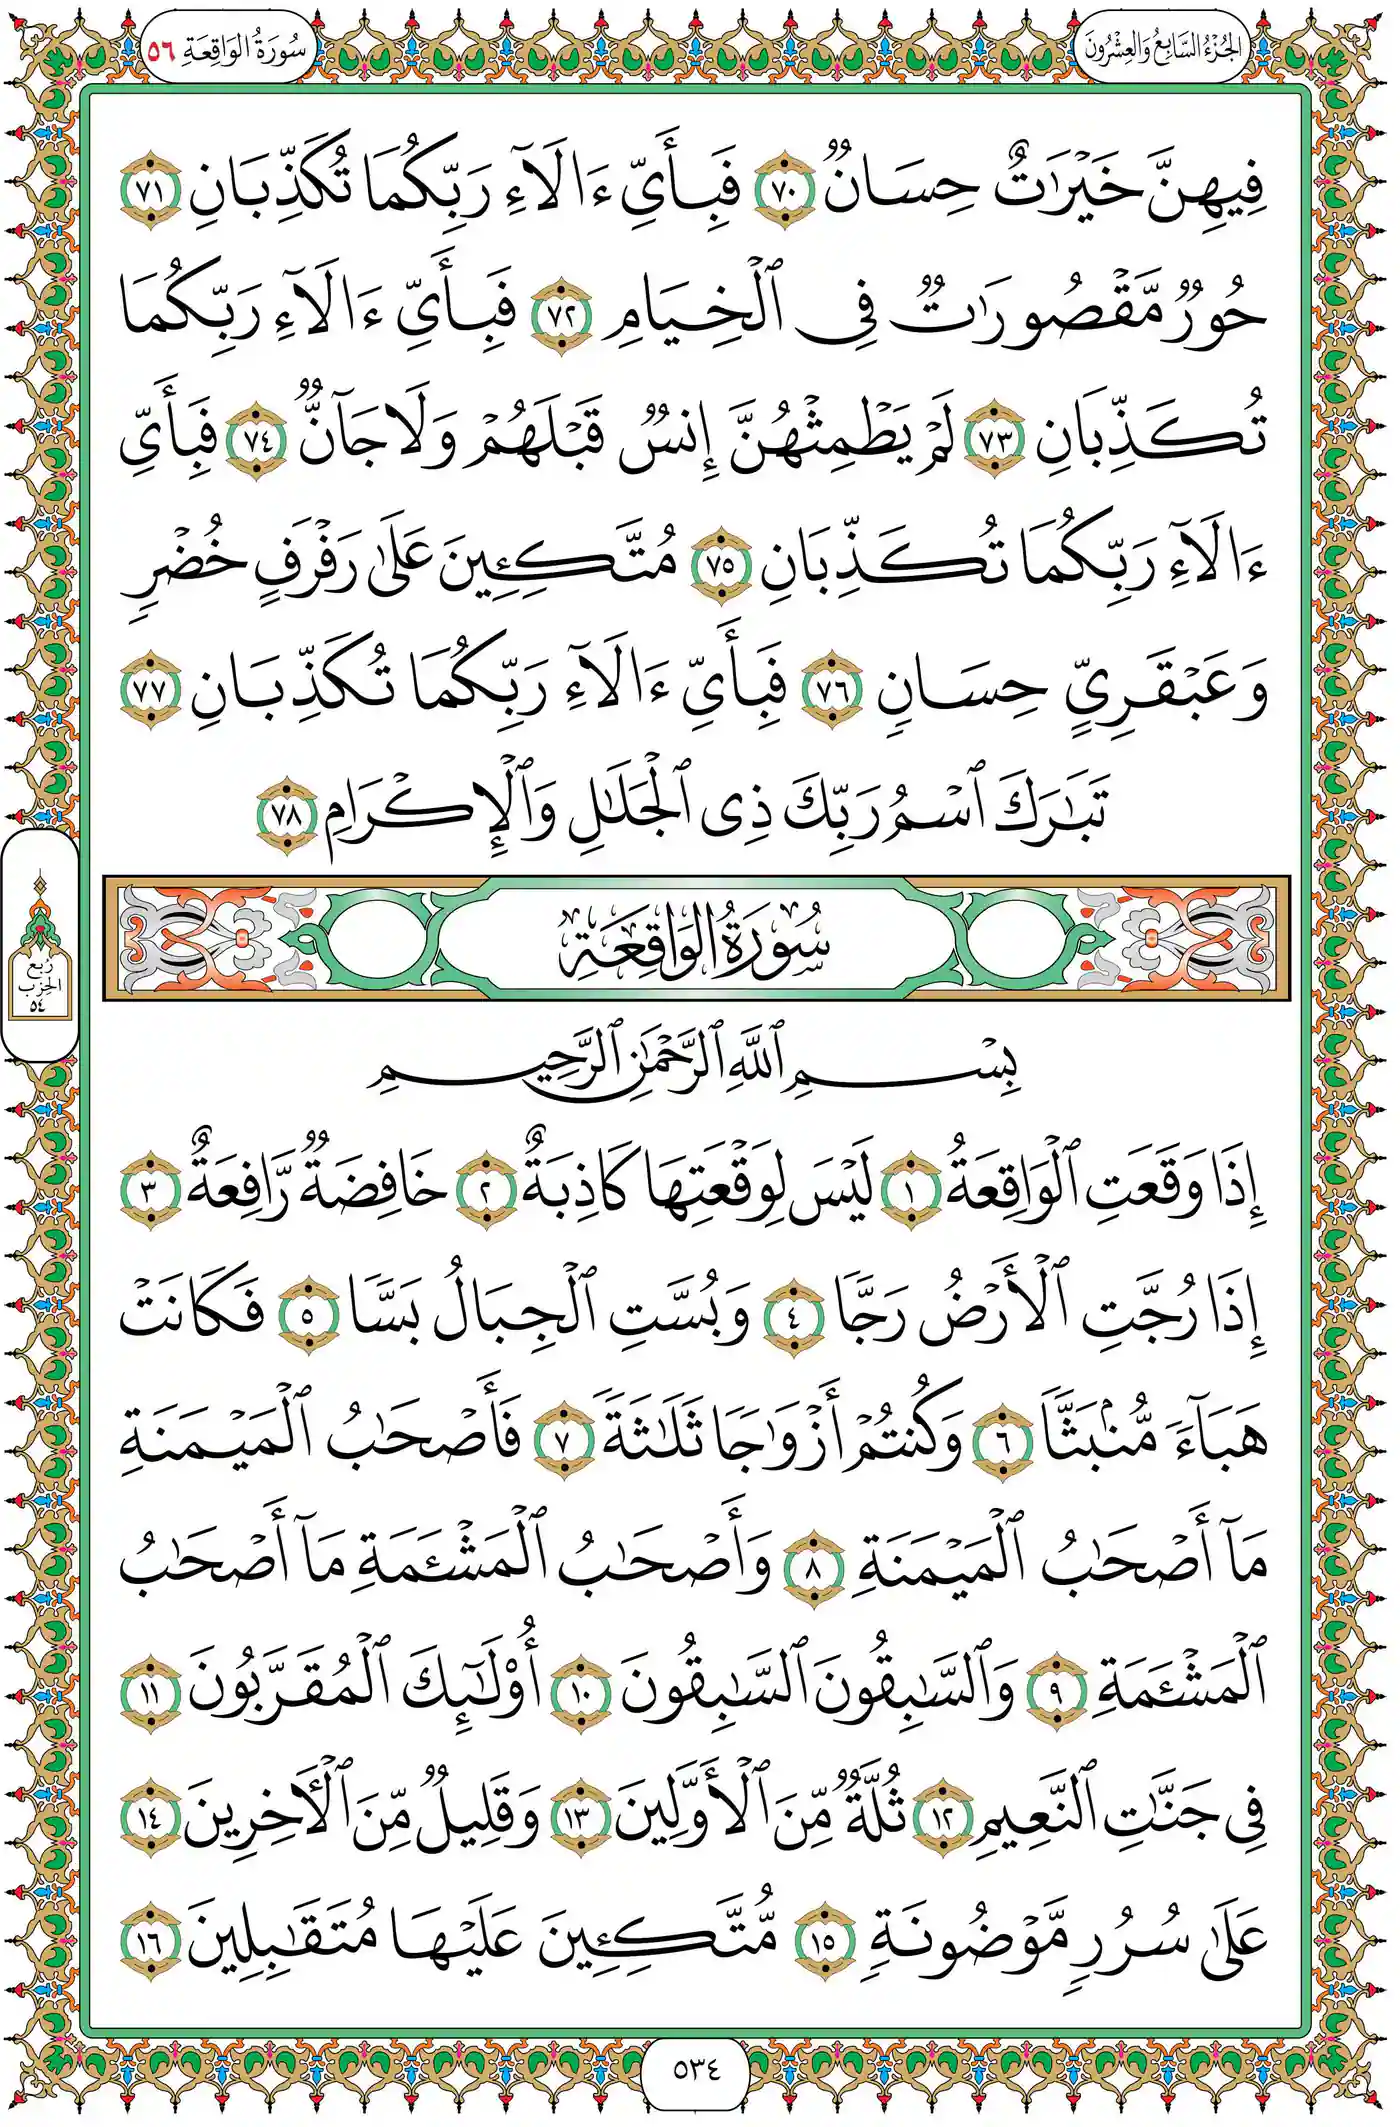 الجُزْءُ السَّابِعُ وَالعِشْرُونَ
سُورَةُ الوَاقِعَةِ ٥٦
فِيهِنَّ خَيْرَٰتٌ حِسَانٌ ٧٠ فَبِأَيِّ ءَالَآءِ رَبِّكُمَا تُكَذِّبَانِ ٧١
حُورٌ مَّقْصُورَٰتٌ فِى ٱلْخِيَامِ ٧٢ فَبِأَيِّ ءَالَآءِ رَبِّكُمَا
تُكَذِّبَانِ ٧٣ لَمْ يَطْمِثْهُنَّ إِنسٌ قَبْلَهُمْ وَلَا جَآنٌّ ٧٤ فَبِأَيِّ
ءَالَآءِ رَبِّكُمَا تُكَذِّبَانِ ٧٥ مُتَّكِـِٔينَ عَلَىٰ رَفْرَفٍ خُضْرٍ
وَعَبْقَرِيٍّ حِسَانٍ ٧٦ فَبِأَيِّ ءَالَآءِ رَبِّكُمَا تُكَذِّبَانِ ٧٧
تَبَٰرَكَ ٱسْمُ رَبِّكَ ذِى ٱلْجَلَٰلِ وَٱلْإِكْرَامِ ٧٨
سُورَةُ الوَاقِعَةِ
بِسْمِ ٱللَّهِ ٱلرَّحْمَٰنِ ٱلرَّحِيمِ
إِذَا وَقَعَتِ ٱلْوَاقِعَةُ ١ لَيْسَ لِوَقْعَتِهَا كَاذِبَةٌ ٢ خَافِضَةٌ رَّافِعَةٌ ٣
إِذَا رُجَّتِ ٱلْأَرْضُ رَجًّا ٤ وَبُسَّتِ ٱلْجِبَالُ بَسًّا ٥ فَكَانَتْ
هَبَآءً مُّنۢبَثًّا ٦ وَكُنتُمْ أَزْوَٰجًا ثَلَٰثَةً ٧ فَأَصْحَٰبُ ٱلْمَيْمَنَةِ
مَآ أَصْحَٰبُ ٱلْمَيْمَنَةِ ٨ وَأَصْحَٰبُ ٱلْمَشْـَٔمَةِ مَآ أَصْحَٰبُ
ٱلْمَشْـَٔمَةِ ٩ وَٱلسَّٰبِقُونَ ٱلسَّٰبِقُونَ ١٠ أُو۟لَٰٓئِكَ ٱلْمُقَرَّبُونَ ١١
فِى جَنَّٰتِ ٱلنَّعِيمِ ١٢ ثُلَّةٌ مِّنَ ٱلْأَوَّلِينَ ١٣ وَقَلِيلٌ مِّنَ ٱلْـَٔاخِرِينَ ١٤
عَلَىٰ سُرُرٍ مَّوْضُونَةٍ ١٥ مُّتَّكِـِٔينَ عَلَيْهَا مُتَقَٰبِلِينَ ١٦
رُبع
الحِزْب
٥٤
٥٣٤